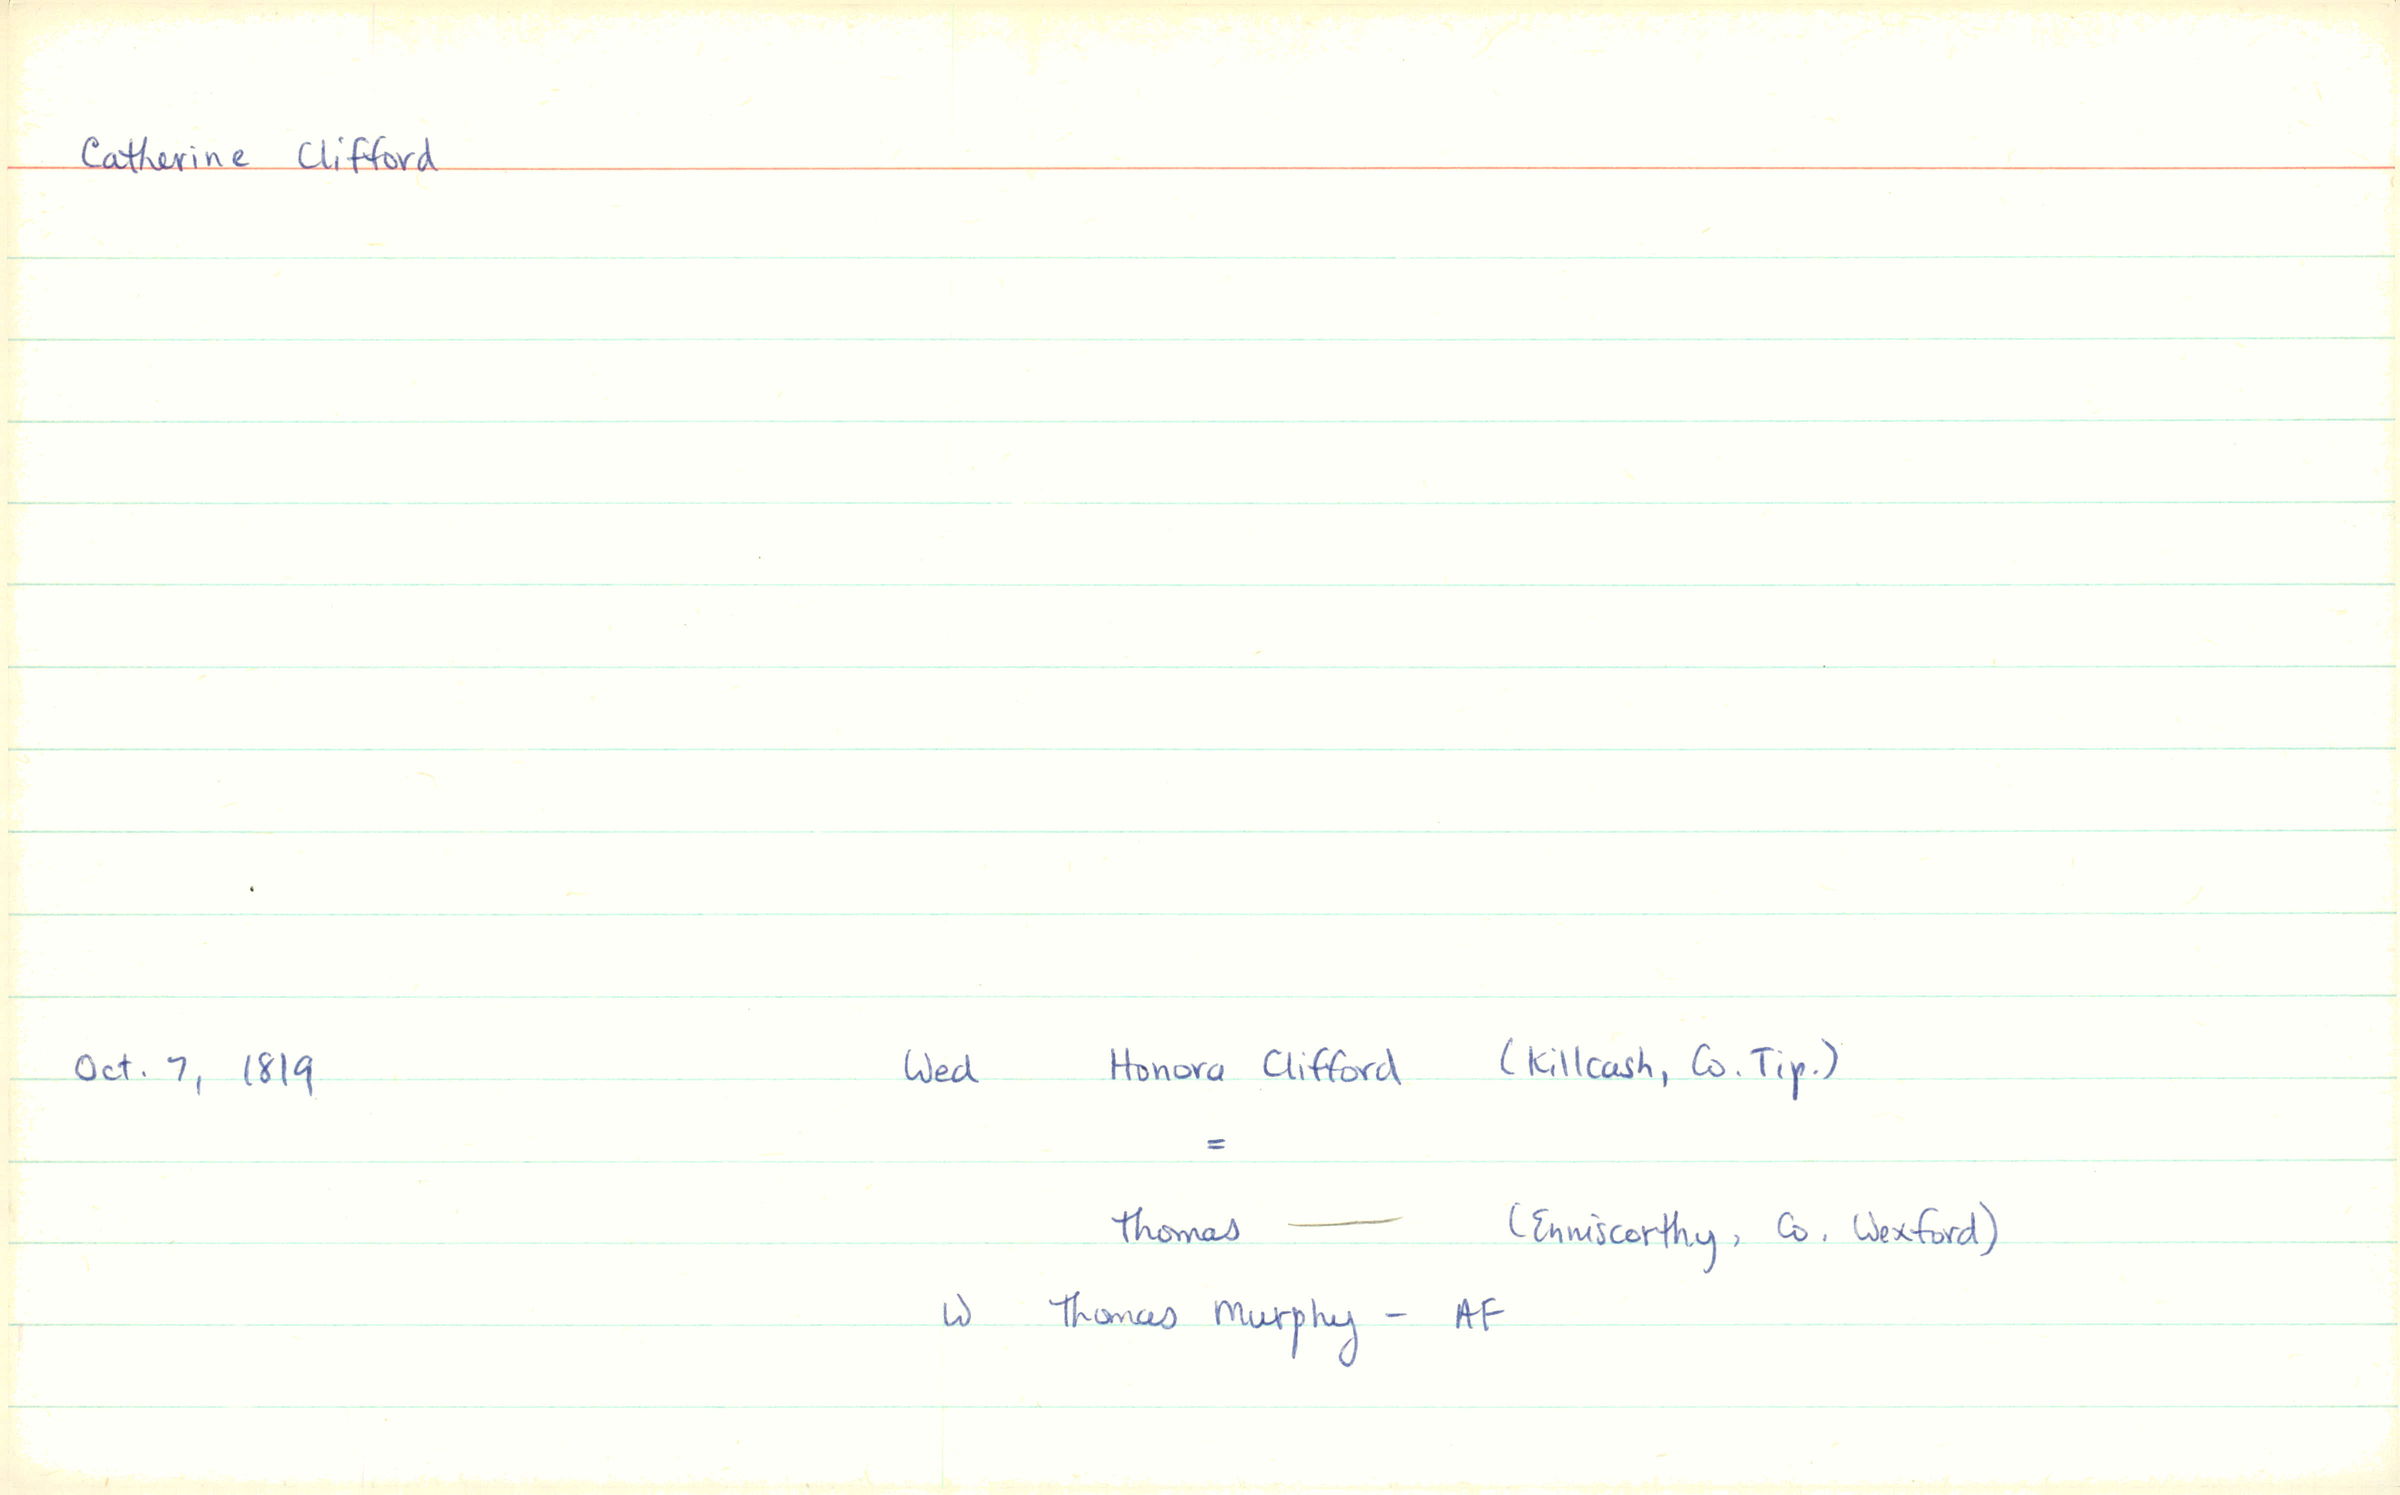 Catherine Clifford
Oct. 7, 1819 Wed Honora Clifford (Killcash, Co. Tip.)
=
Thomas — (Enniscorthy, Co. Wexford)
W Thomas Murphy - AF